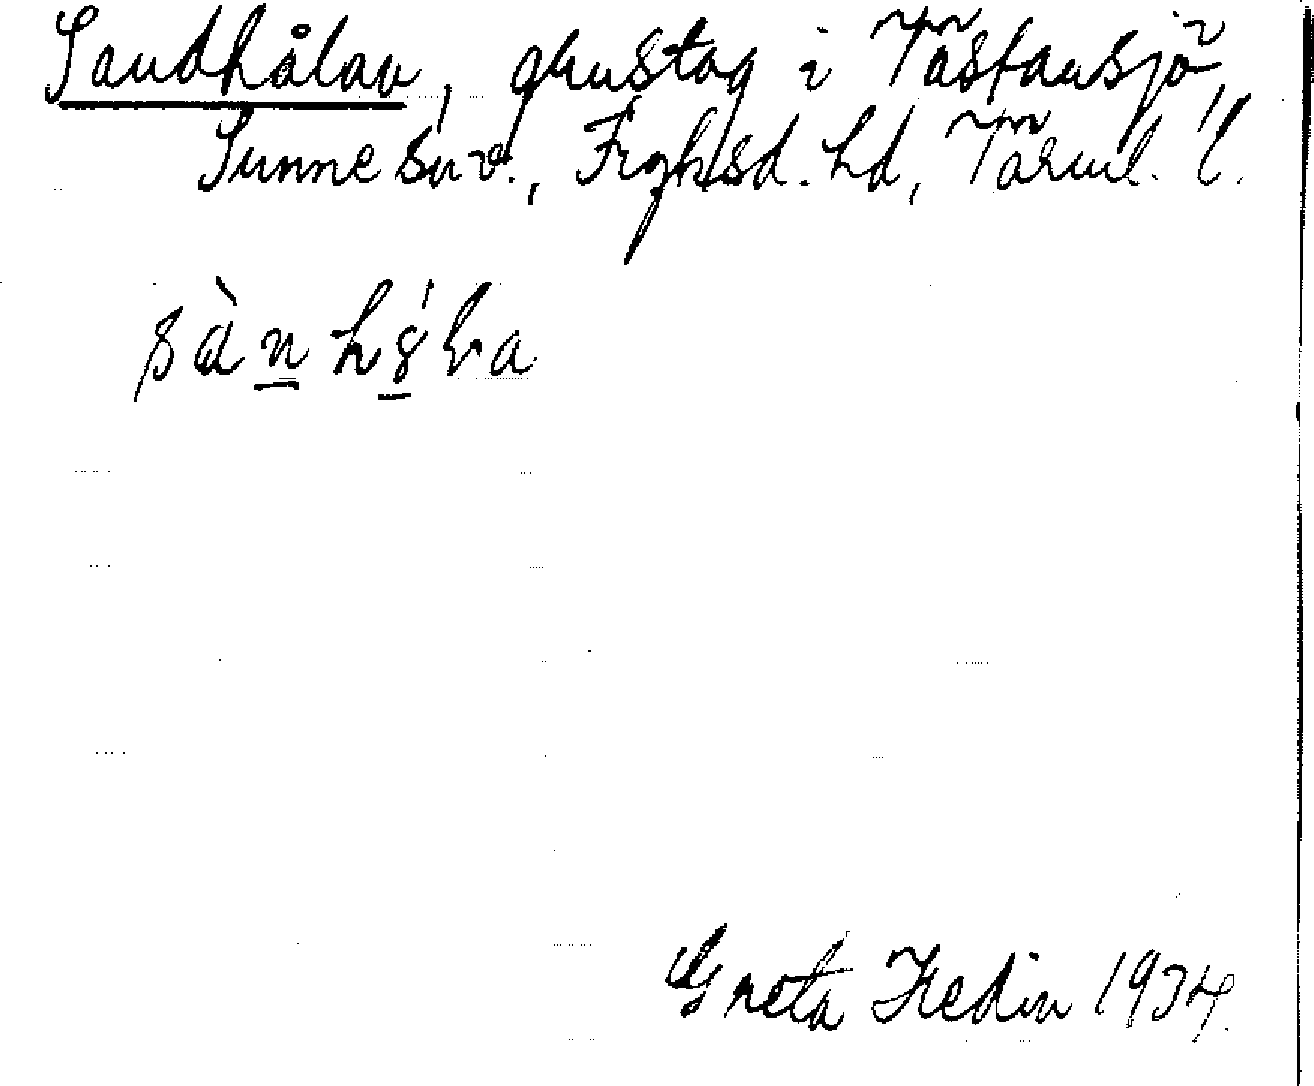 Sandhålan, grustag i Västansjö,
Sunne sn., Frykfsd. hd, Värml. l.
Greta Hedin 1934.